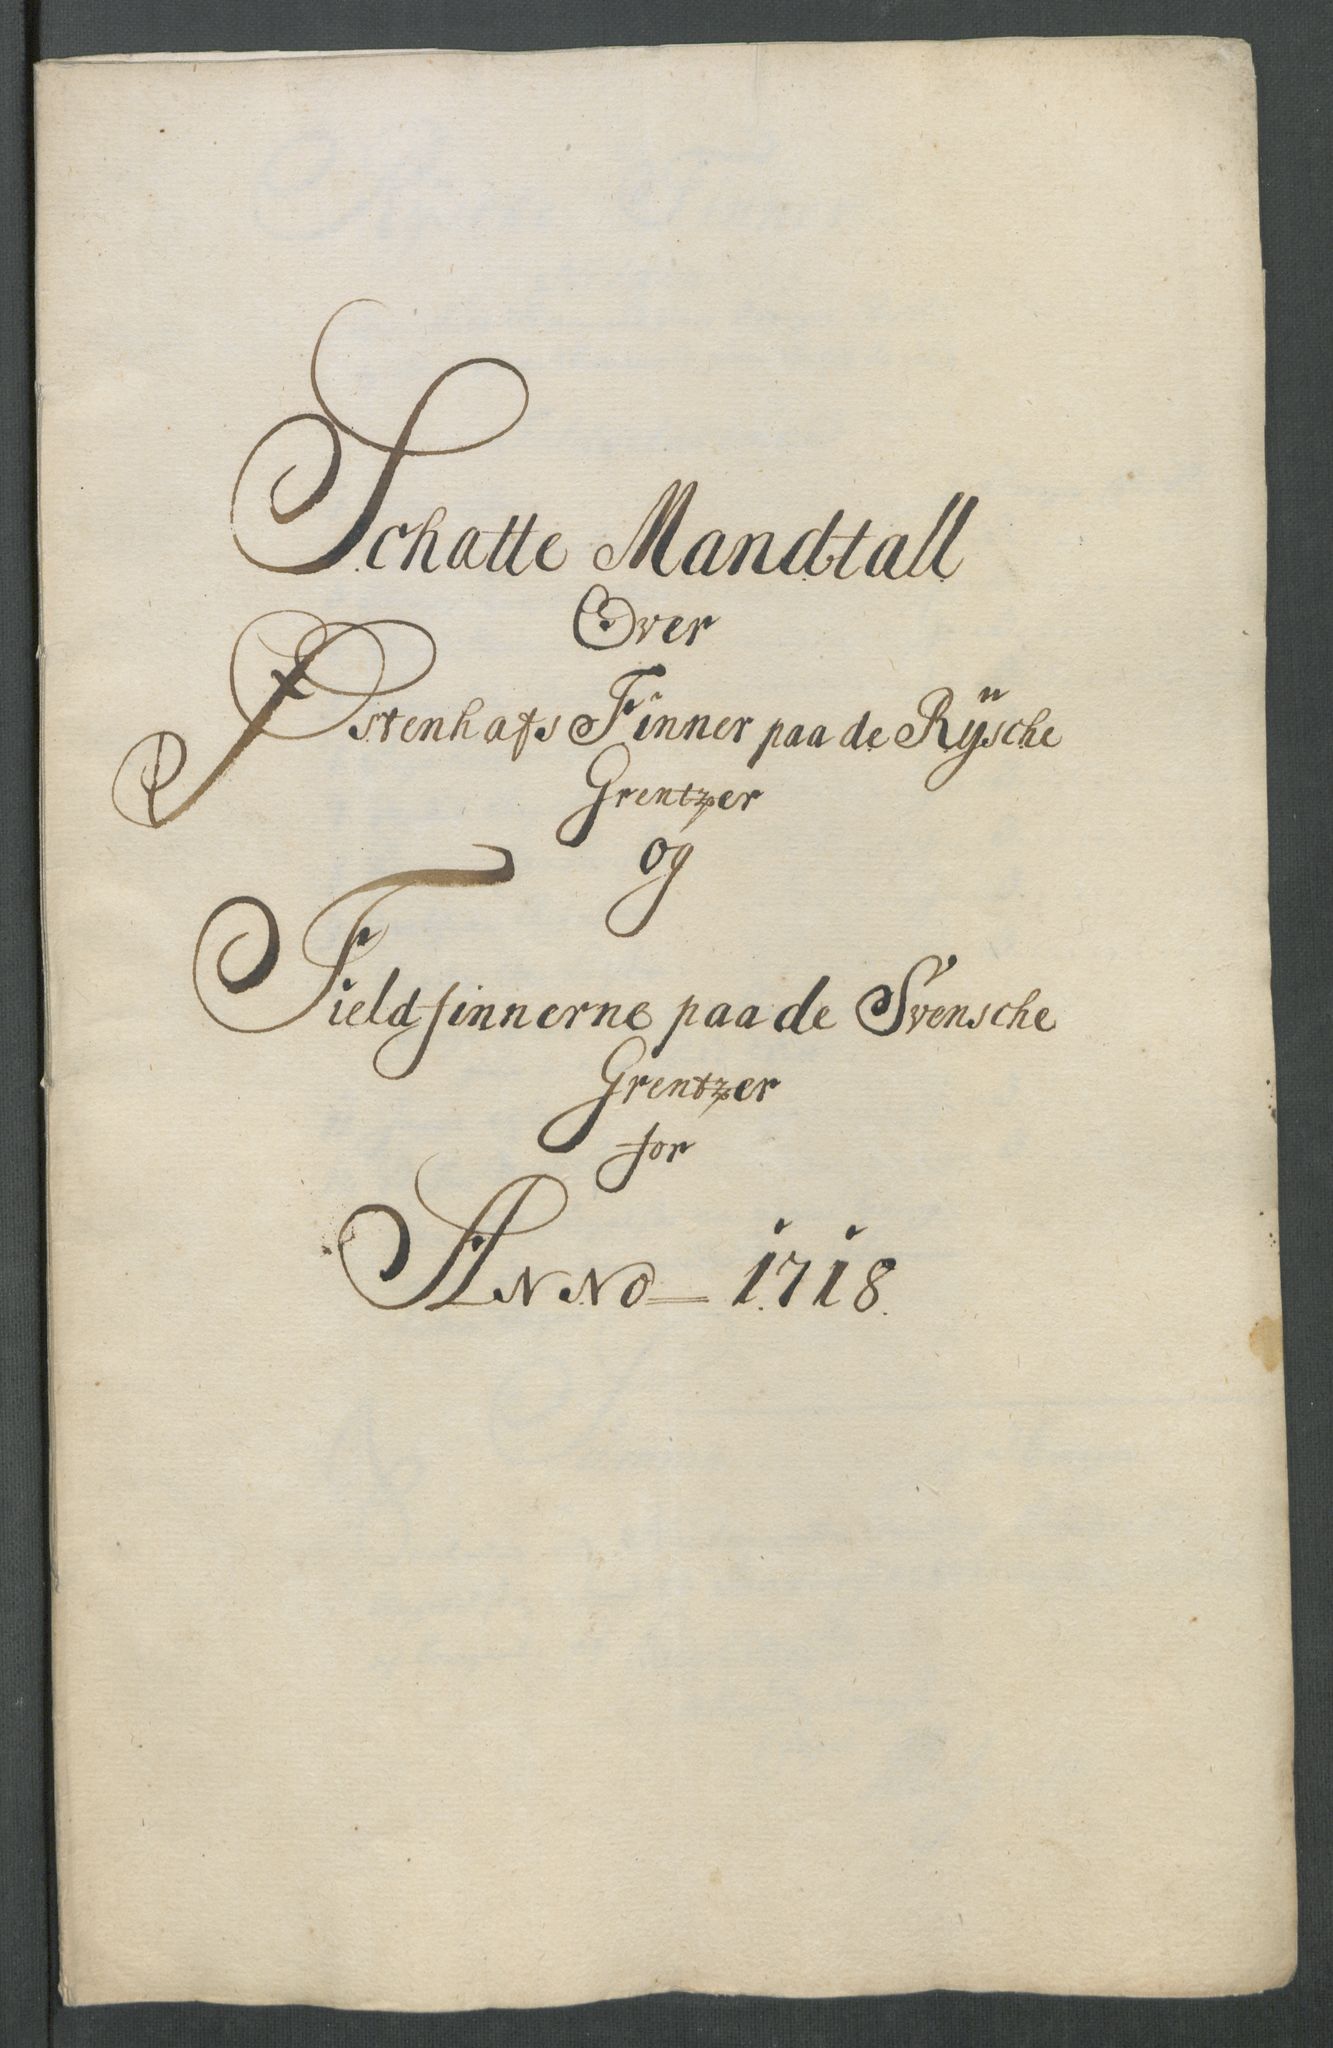 Schatte Mandtall
Over
Østenhafs Finner paa de Rÿsche
Grentzer
og
Fieldfinnerne paa de Svensche
Grentzer
for
ANNO 1718.